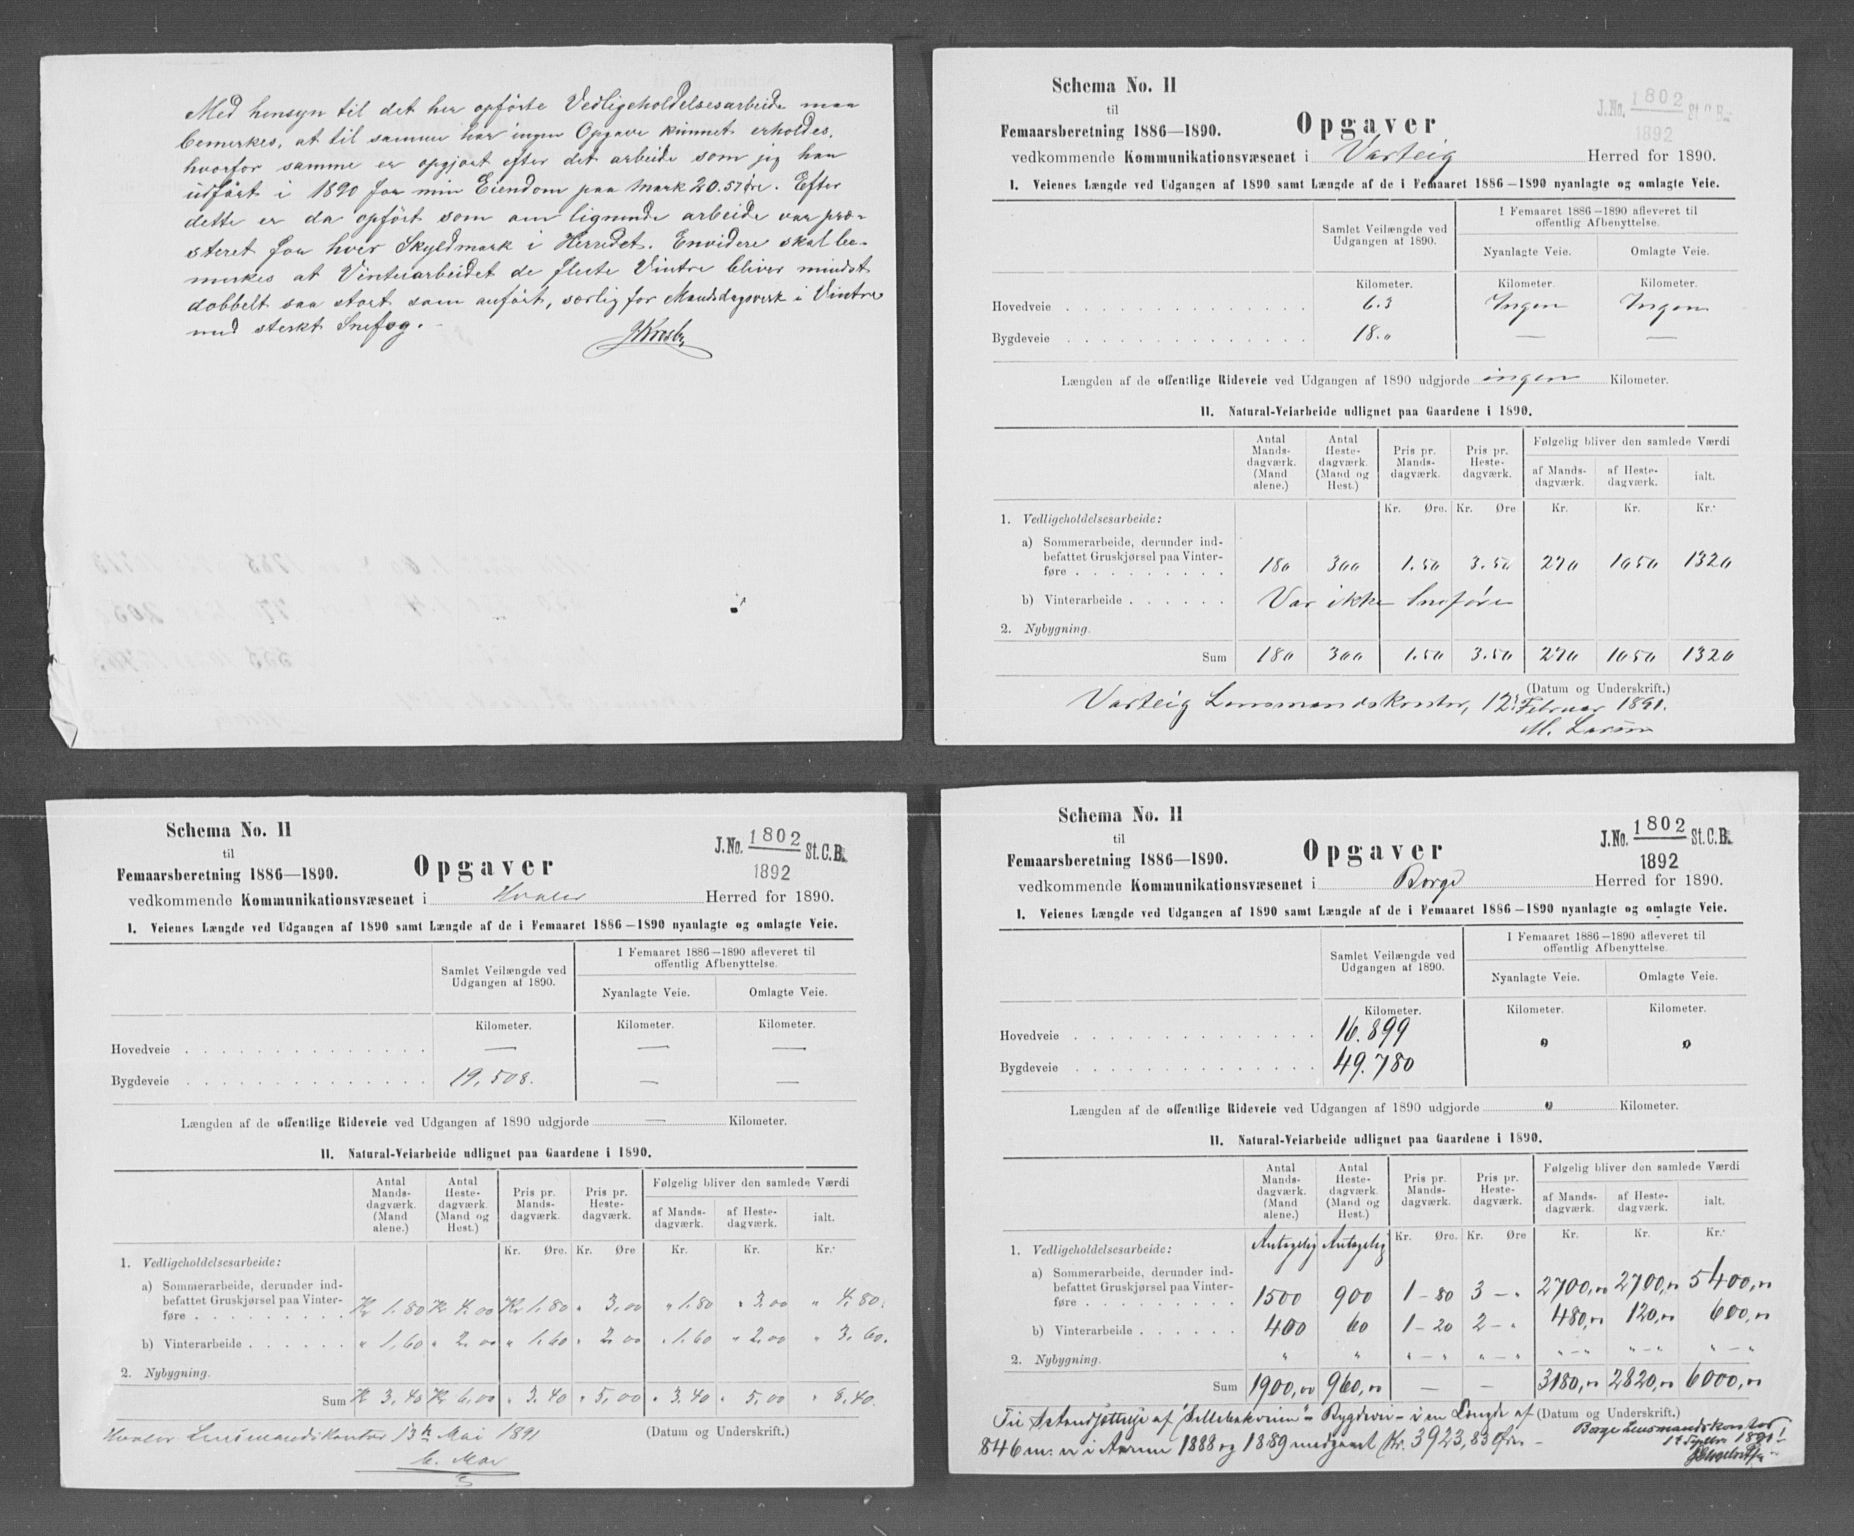 Med hensyn til det her opförte Vedligeholdelsesarbeide maa
bemerkes, at til samme har ingen Opgave kunnet erholdes,
hvorfor samme er opgjort efter det arbeide som jeg har
udfört i 1890 for min Eiendom paa Mark 20.57 øre. Efter
dette er da opfört som om lignende arbeide var præ-
steret for hver Skyldmark i Herredet. Envidere skal be-
merkes at Vinterarbeidet de fleste Vintre bliver mindst
dobbelt saa stort som anfört, særlig for Mandsdagsverk i Vintre
med sterkt Snefog.
Schema No. II
til
Femaarsberetning 1886—1890.
Opgaver
J.No. 1802 St.C.B.
1892
vedkommende Kommunikationsvæsenet i Varteig Herred for 1890.
I. Veienes Længde ved Udgangen af 1890 samt Længde af de i Femaaret 1886—1890 nyanlagte og omlagte Veie.
Samlet Veilængde ved Udgangen af 1890.
I Femaaret 1886—1890 afleveret til offentlig Afbenyttelse.
Nyanlagte Veie. Omlagte Veie.
Kilometer. Kilometer. Kilometer.
Hovedveie 6.3 Ingen Ingen
Bygdeveie 18.„ — —
Længden af de offentlige Rideveie ved Udgangen af 1890 udgjorde ingen Kilometer.
II. Natural-Veiarbeide udlignet paa Gaardene i 1890.
Antal Mands-dagværk. (Mand alene.) Antal Heste-dagværk. (Mand og Hest.) Pris pr. Mands-dagværk. Pris pr. Heste-dagværk. Følgelig bliver den samlede Værdi
af Mands-dagværk. af Heste-dagværk. ialt.
Kr. Øre. Kr. Øre Kr. Kr. Kr.
1. Vedligeholdelsesarbeide:
a) Sommerarbeide, derunder ind-
befattet Gruskjørsel paa Vinter-
føre 180 300 1.50 3.50 270 1050 1320
b) Vinterarbeide Var ikke Sneföre
2. Nybygning.
Sum 180 300 1.50 3.50 270 1050 1320
(Datum og Underskrift.)
Varteig Lensmandskontor, 12 Februar 1891.
M. Larsen
Schema No. II
til
Femaarsberetning 1886—1890.
Opgaver
J.No. 1802 St.C.B.
1892
vedkommende Kommunikationsvæsenet i Hvaler Herred for 1890.
I. Veienes Længde ved Udgangen af 1890 samt Længde af de i Femaaret 1886—1890 nyanlagte og omlagte Veie.
Samlet Veilængde ved Udgangen af 1890.
I Femaaret 1886—1890 afleveret til offentlig Afbenyttelse.
Nyanlagte Veie. Omlagte Veie.
Kilometer. Kilometer. Kilometer.
Hovedveie — — —
Bygdeveie 19,508. — —
Længden af de offentlige Rideveie ved Udgangen af 1890 udgjorde — Kilometer.
II. Natural-Veiarbeide udlignet paa Gaardene i 1890.
Antal Mands-dagværk. (Mand alene.) Antal Heste-dagværk. (Mand og Hest.) Pris pr. Mands-dagværk. Pris pr. Heste-dagværk. Følgelig bliver den samlede Værdi
af Mands-dagværk. af Heste-dagværk. ialt.
Kr. Øre. Kr. Øre Kr. Kr. Kr.
1. Vedligeholdelsesarbeide:
a) Sommerarbeide, derunder ind-
befattet Gruskjørsel paa Vinter-
føre Kr 1.80 Kr 4.00 Kr 1.80 „ 3,00 „ 1.80 „ 3.00 „ 4.80.
b) Vinterarbeide „ 1,60 „ 2,00 „ 1.60 „ 2.00 „ 1.60 „ 2.00 „ 3.60.
2. Nybygning.
Sum Kr 3.40 Kr 6,00 „ 3.40 „ 5,00 „ 3.40 „ 5,00 „ 8,40.
(Datum og Underskrift.)
Hvaler Lensmandskontor 13de Mai 1891
Schema No. II
til
Femaarsberetning 1886—1890.
Opgaver
J.No. 1802 St.C.B.
1892
vedkommende Kommunikationsvæsenet i Borge Herred for 1890.
I. Veienes Længde ved Udgangen af 1890 samt Længde af de i Femaaret 1886—1890 nyanlagte og omlagte Veie.
Samlet Veilængde ved Udgangen af 1890.
I Femaaret 1886—1890 afleveret til offentlig Afbenyttelse.
Nyanlagte Veie. Omlagte Veie.
Kilometer. Kilometer. Kilometer.
Hovedveie 16.899 „ „
Bygdeveie 49.780
Længden af de offentlige Rideveie ved Udgangen af 1890 udgjorde „ Kilometer.
II. Natural-Veiarbeide udlignet paa Gaardene i 1890.
Antal Mands-dagværk. (Mand alene.) Antal Heste-dagværk. (Mand og Hest.) Pris pr. Mands-dagværk. Pris pr. Heste-dagværk. Følgelig bliver den samlede Værdi
af Mands-dagværk. af Heste-dagværk. ialt.
Antagelig Antagelig Kr. Øre. Kr. Øre Kr. Kr. Kr.
1. Vedligeholdelsesarbeide:
a) Sommerarbeide, derunder ind-
befattet Gruskjørsel paa Vinter-
føre 1500 900 1 - 80 3 - „ 2700,„ 2700,„ 5400,„
b) Vinterarbeide 400 60 1 - 20 2 - „ 480,„ 120,„ 600,„
2. Nybygning. „ „ „ - „ „ - „ „ - „ „ - „ „ - „
Sum 1900,„ 960,„ — — 3180,„ 2820,„ 6000,„
(Datum og Underskrift.)
Til Istandsættelse af Bygdevei i en Længde af
846 m. er i Aarene 1888 og 1889 medgaaet Kr. 3923,83 Øre
Borge Lensmandskontor